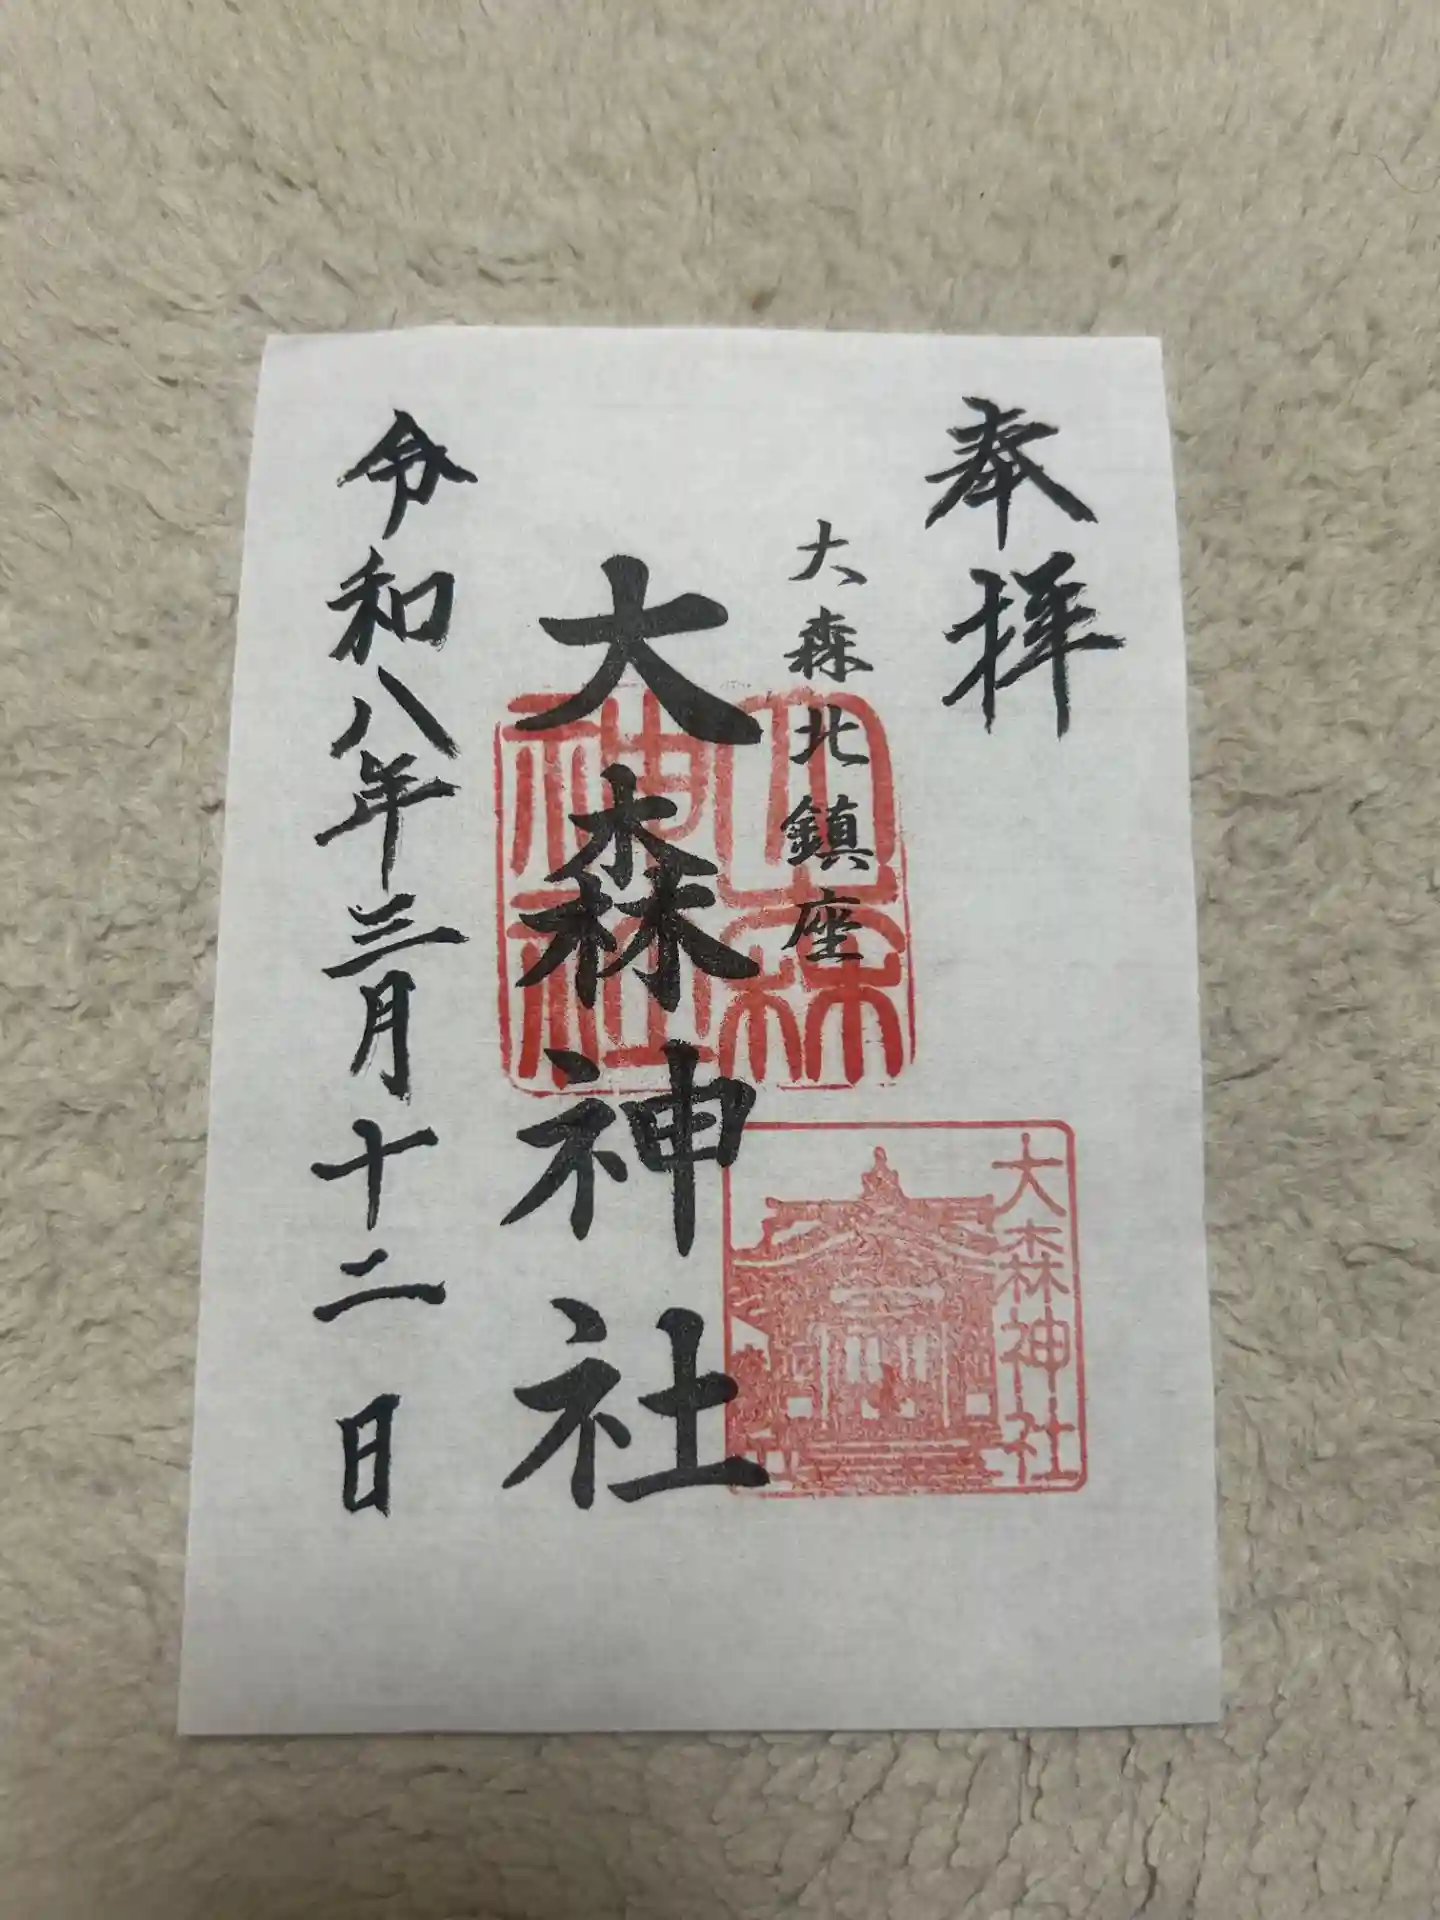 奉拝
大森北鎮座
大森神社
大森神社
大森神社
令和八年三月十二日